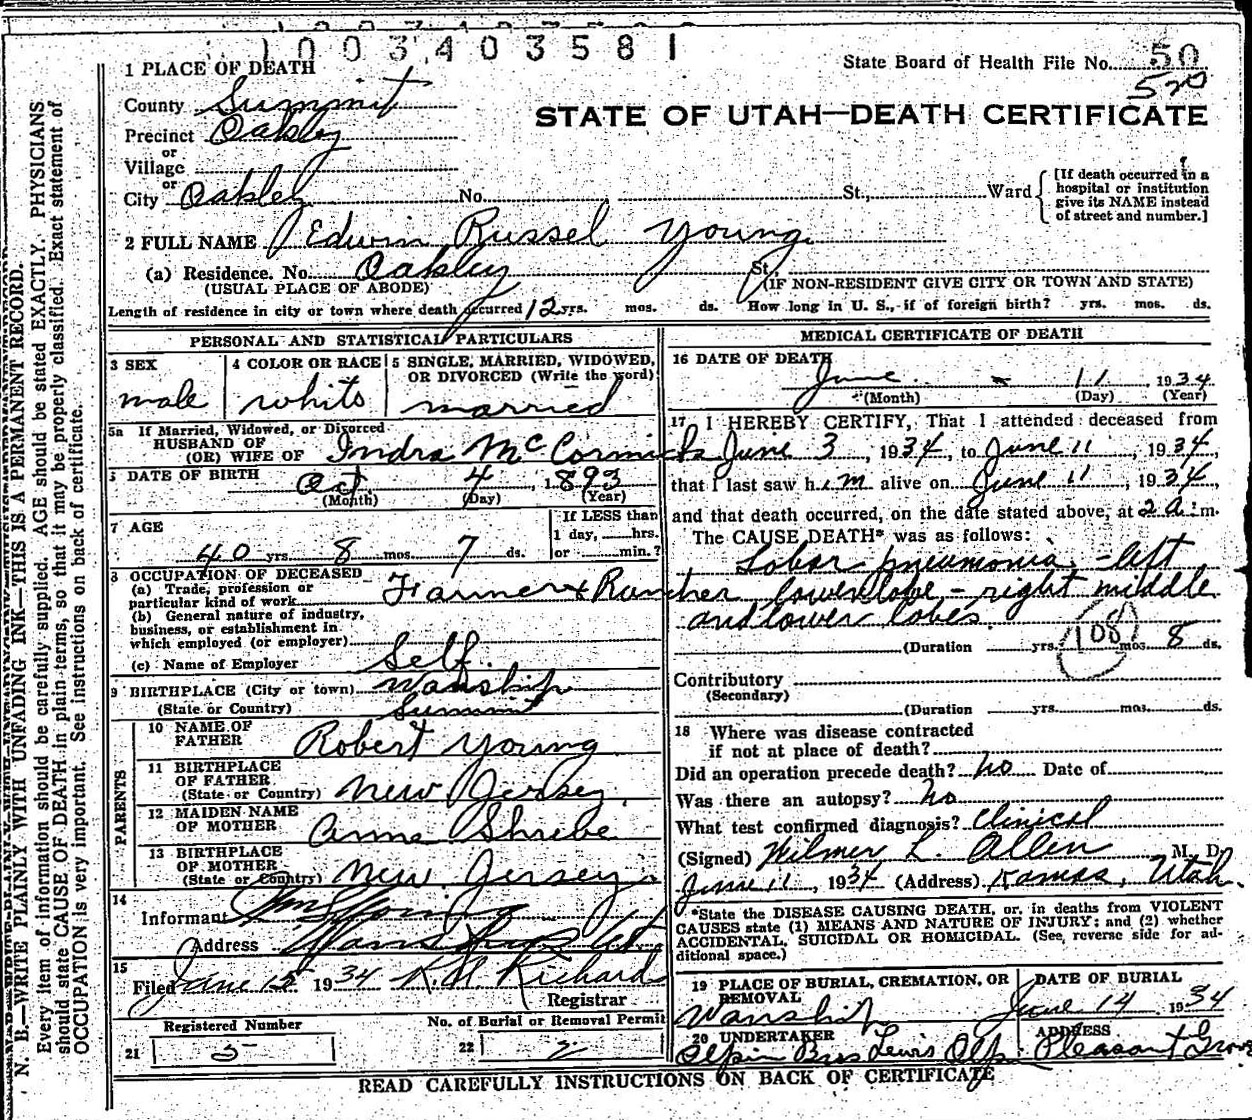 1003403581
State Board of Health File No. 50
520
STATE OF UTAH—DEATH CERTIFICATE
1 PLACE OF DEATH
County Summit
Precinct Oakley
or
Village
or
City Oakley No. St., Ward
[If death occurred in a
hospital or institution
give its NAME instead
of street and number.]
2 FULL NAME Edwin Russel Young
(a) Residence. No. Oakley St.
(USUAL PLACE OF ABODE) (IF NON-RESIDENT GIVE CITY OR TOWN AND STATE)
Length of residence in city or town where death occurred 12 yrs. mos. ds. How long in U. S., if of foreign birth? yrs. mos. ds.
PERSONAL AND STATISTICAL PARTICULARS
3 SEX
male
4 COLOR OR RACE
white
5 SINGLE, MARRIED, WIDOWED,
OR DIVORCED (Write the word)
married
5a If Married, Widowed, or Divorced
HUSBAND OF
(OR) WIFE OF Indra McCormick
DATE OF BIRTH Oct 4, 1893
(Month) (Day) (Year)
7 AGE
40 yrs. 8 mos. 7 ds.
If LESS than
1 day, hrs.
or min.?
8 OCCUPATION OF DECEASED
(a) Trade, profession or
particular kind of work Farmer & Rancher
(b) General nature of industry,
business, or establishment in
which employed (or employer)
(c) Name of Employer Self.
9 BIRTHPLACE (City or town) Wanship
(State or Country) Summit
PARENTS
10 NAME OF
FATHER Robert Young
11 BIRTHPLACE
OF FATHER
(State or Country) New Jersey
12 MAIDEN NAME
OF MOTHER Anne Shribe
13 BIRTHPLACE
OF MOTHER
(State or Country) New Jersey
14
Informant Wm Young
Address Wanship Ut
15
Filed June 15 1934 K.M. Richards
Registrar
Registered Number
21 5
No. of Burial or Removal Permit
22 2
MEDICAL CERTIFICATE OF DEATH
16 DATE OF DEATH
June - 11, 1934
(Month) (Day) (Year)
17 I HEREBY CERTIFY, That I attended deceased from
June 3, 1934, to June 11, 1934,
that I last saw him alive on June 11, 1934,
and that death occurred, on the date stated above, at 2 a. m.
The CAUSE DEATH* was as follows:
Lobar pneumonia - left
lower lobe - right middle
and lower lobes.
(Duration yrs. mos. 8 ds.
108
Contributory
(Secondary)
(Duration yrs. mos. ds.
18 Where was disease contracted
if not at place of death?
Did an operation precede death? No Date of
Was there an autopsy? No
What test confirmed diagnosis? Clinical
(Signed) Wilmer L. Allen M. D.
June 11, 1934 (Address) Kamas, Utah.
*State the DISEASE CAUSING DEATH, or, in deaths from VIOLENT
CAUSES state (1) MEANS AND NATURE OF INJURY; and (2) whether
ACCIDENTAL, SUICIDAL OR HOMICIDAL. (See reverse side for ad-
ditional space.)
19 PLACE OF BURIAL, CREMATION, OR
REMOVAL
Wanship
DATE OF BURIAL
June 14 1934
20 UNDERTAKER
Olpin Bros Lewis Olpin
ADDRESS
Pleasant Grove
READ CAREFULLY INSTRUCTIONS ON BACK OF CERTIFICATE
N. B.—WRITE PLAINLY WITH UNFADING INK—THIS IS A PERMANENT RECORD.
Every item of information should be carefully supplied. AGE should be stated EXACTLY. PHYSICIANS
should state CAUSE OF DEATH in plain terms, so that it may be properly classified. Exact statement of
OCCUPATION is very important. See instructions on back of certificate.